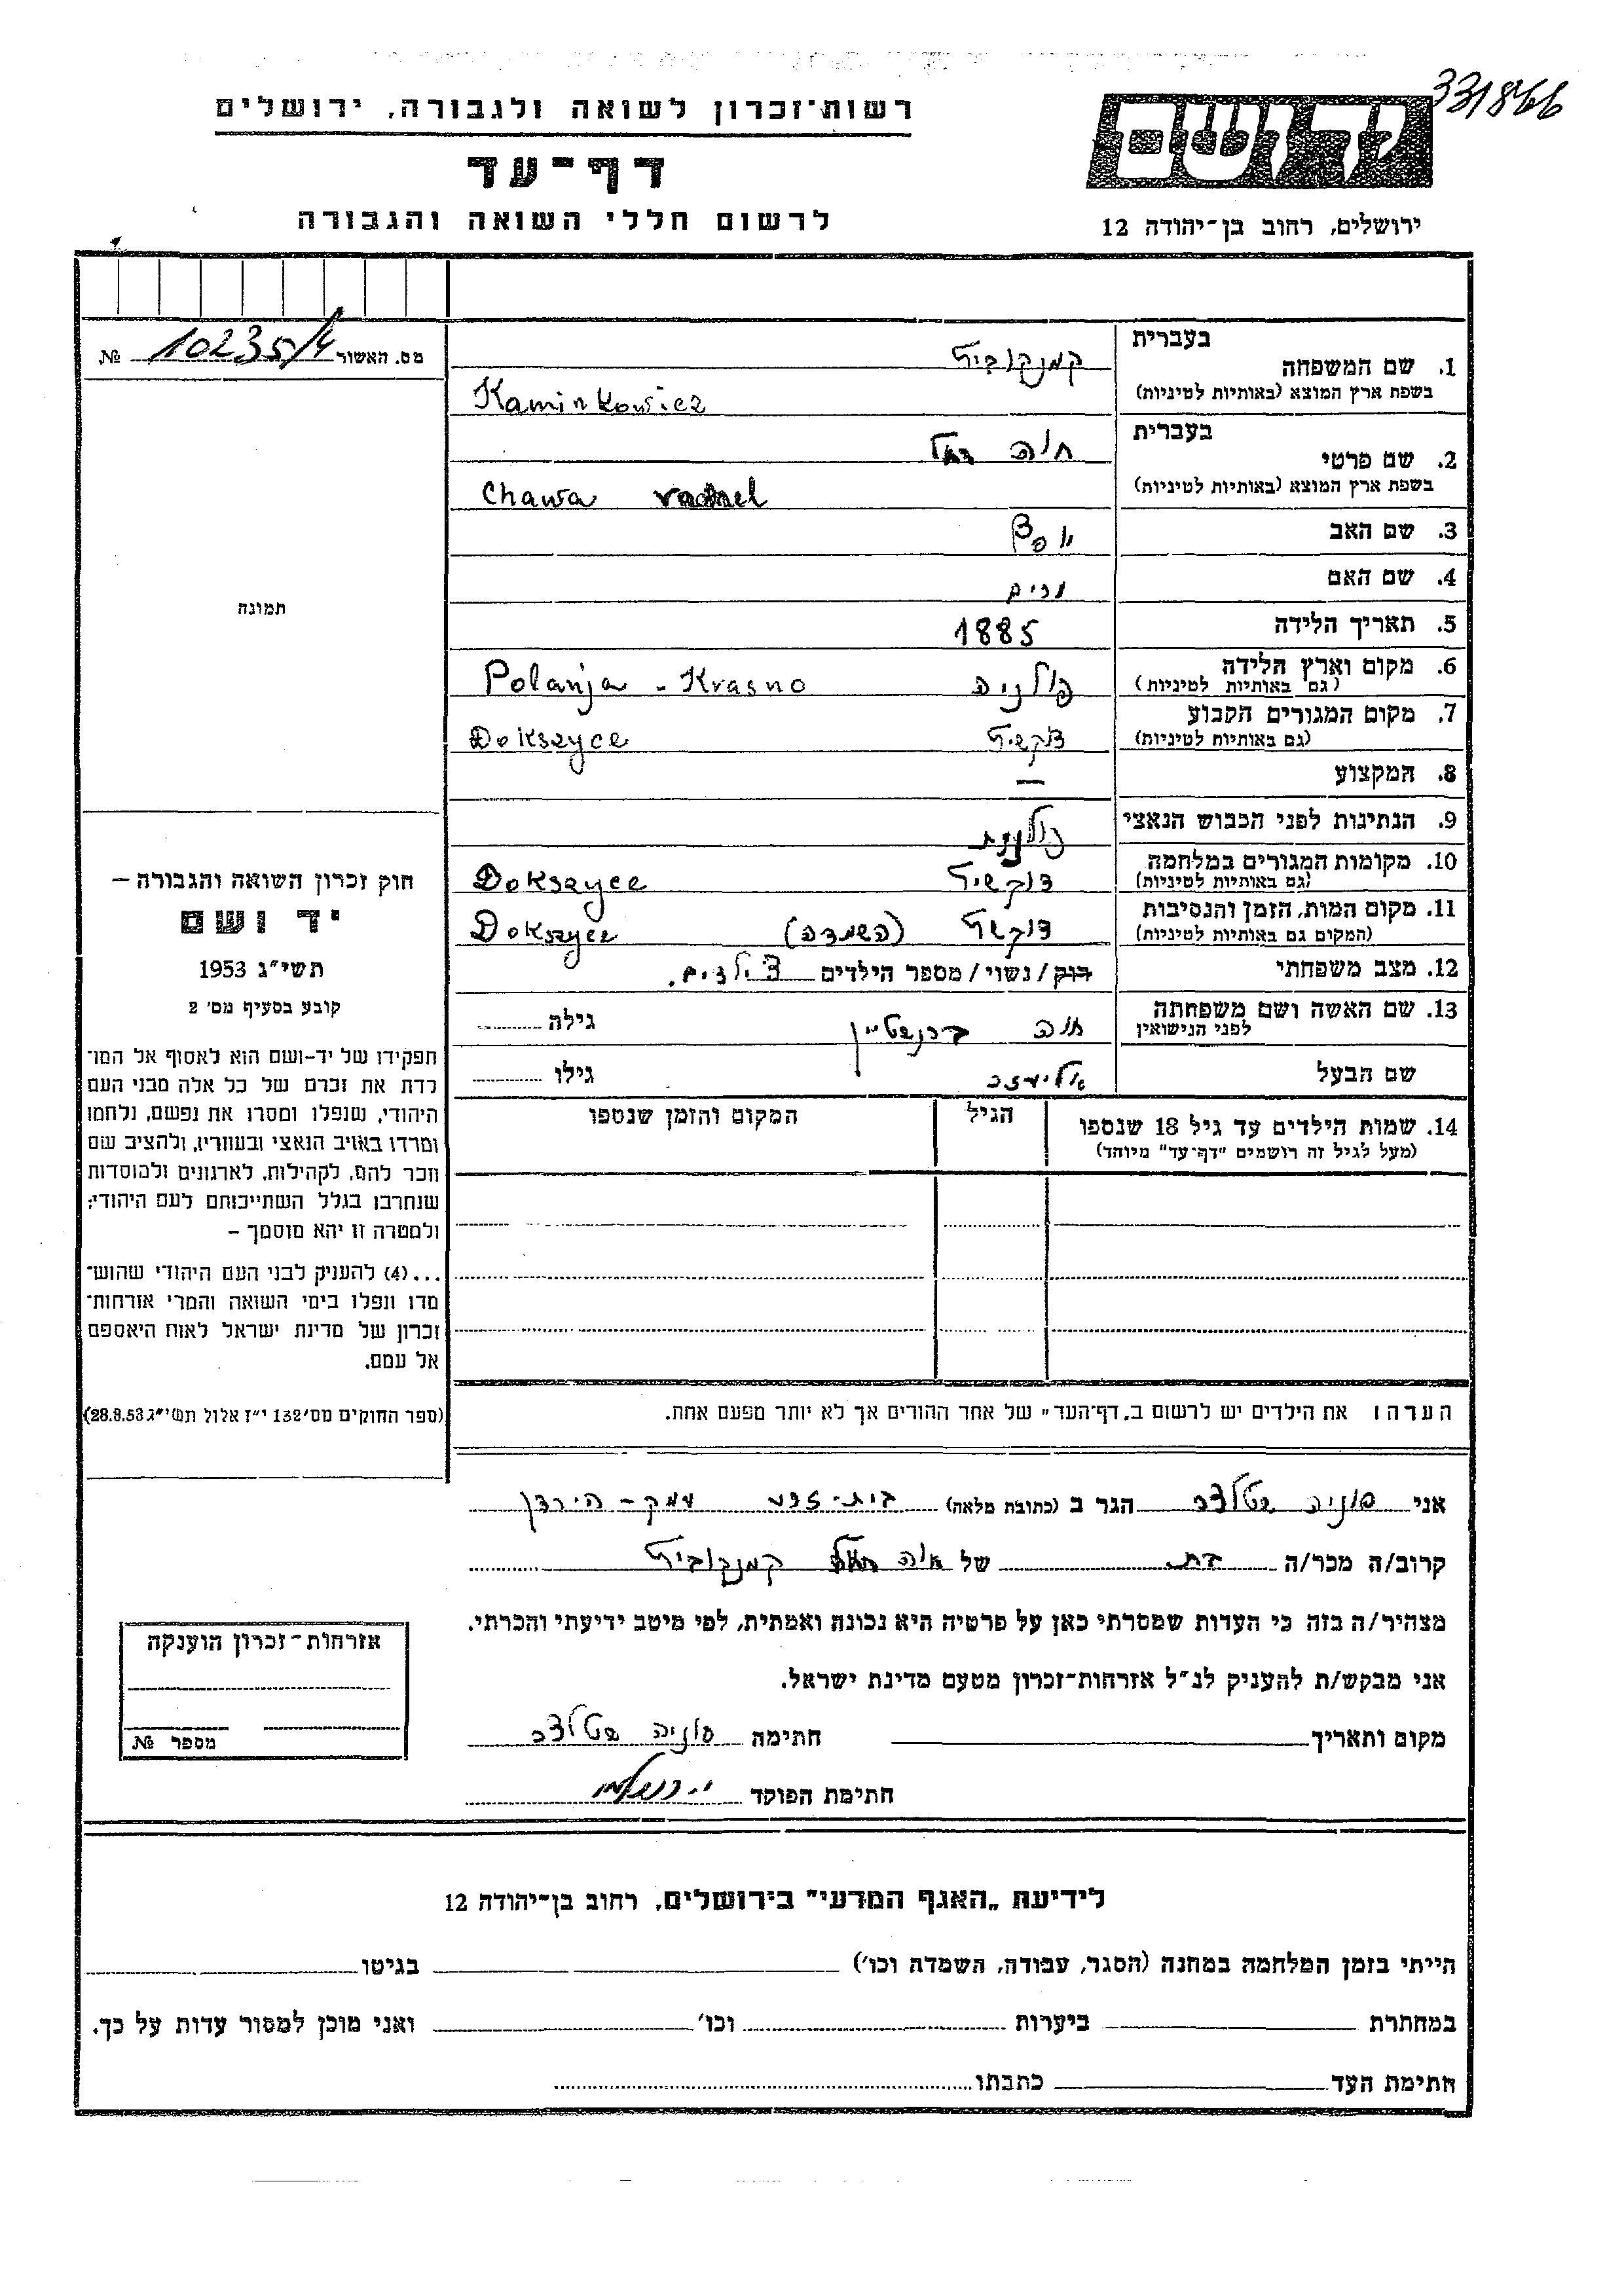 331866
רשות־זכרון לשואה ולגבורה, ירושלים
דף־עד
לרשום חללי השואה והגבורה
ידושם
ירושלים, רחוב בן־יהודה 12
מס. האשור 10235/4 №
תמונה
חוק זכרון השואה והגבורה –
יד ושם
תשי״ג 1953
קובע בסעיף מס׳ 2
תפקידו של יד-ושם הוא לאסוף אל המו־
לדת את זכרם של כל אלה מבני העם
היהודי, שנפלו ומסרו את נפשם, נלחמו
ומרדו באויב הנאצי ובעוזריו, ולהציב שם
וזכר להם, לקהילות, לארגונים ולמוסדות
שנחרבו בגלל השתייכותם לעם היהודי;
ולמטרה זו יהא מוסמך –
...(4) להעניק לבני העם היהודי שהוש־
מדו ונפלו בימי השואה והמרי אזרחות־
זכרון של מדינת ישראל לאות היאספם
אל עמם.
(ספר החוקים מס׳132 י״ז אלול תשי״ג 28.8.53)
1. שם המשפחה בעברית קמנקוביץ
בשפת ארץ המוצא (באותיות לטיניות) Kaminkowicz
2. שם פרטי בעברית חוה רחל
בשפת ארץ המוצא (באותיות לטיניות) Chawa rachel
3. שם האב יוסף
4. שם האם
5. תאריך הלידה 1885
6. מקום וארץ הלידה פולניה Polanja - Krasno
(גם באותיות לטיניות)
7. מקום המגורים הקבוע דוקשיץ Dokszyce
(גם באותיות לטיניות)
8. המקצוע —
9. הנתינות לפני הכבוש הנאצי פולנית
10. מקומות המגורים במלחמה דוקשיץ Dokszyce
(גם באותיות לטיניות)
11. מקום המות, הזמן והנסיבות דוקשיץ (השמדה) Dokszyce
(המקום גם באותיות לטיניות)
12. מצב משפחתי רווק/נשוי/מספר הילדים ילדים.
13. שם האשה ושם משפחתה חוה גילה
לפני הנישואין
שם הבעל גילו
14. שמות הילדים עד גיל 18 שנספו הגיל המקום והזמן שנספו
(מעל לגיל זה רושמים "דף־עד" מיוחד)
הערה: את הילדים יש לרשום ב„דף־העד" של אחד ההורים אך לא יותר מפעם אחת.
אני סוניה הגר ב (כתובת מלאה) בית-זרע עמק-הירדן
קרוב/ה מכר/ה בת של חוה רחל קמנקוביץ
מצהיר/ה בזה כי העדות שמסרתי כאן על פרטיה היא נכונה ואמתית, לפי מיטב ידיעתי והכרתי.
אני מבקש/ת להעניק לנ״ל אזרחות־זכרון מטעם מדינת ישראל.
מקום ותאריך חתימה סוניה
חתימת הפוקד
אזרחות־זכרון הוענקה
מספר №
לידיעת „האגף המדעי" בירושלים, רחוב בן־יהודה 12
הייתי בזמן המלחמה במחנה (הסגר, עבודה, השמדה וכו׳) בגיטו
במחתרת ביערות וכו׳ ואני מוכן למסור עדות על כך.
חתימת העד כתבתו